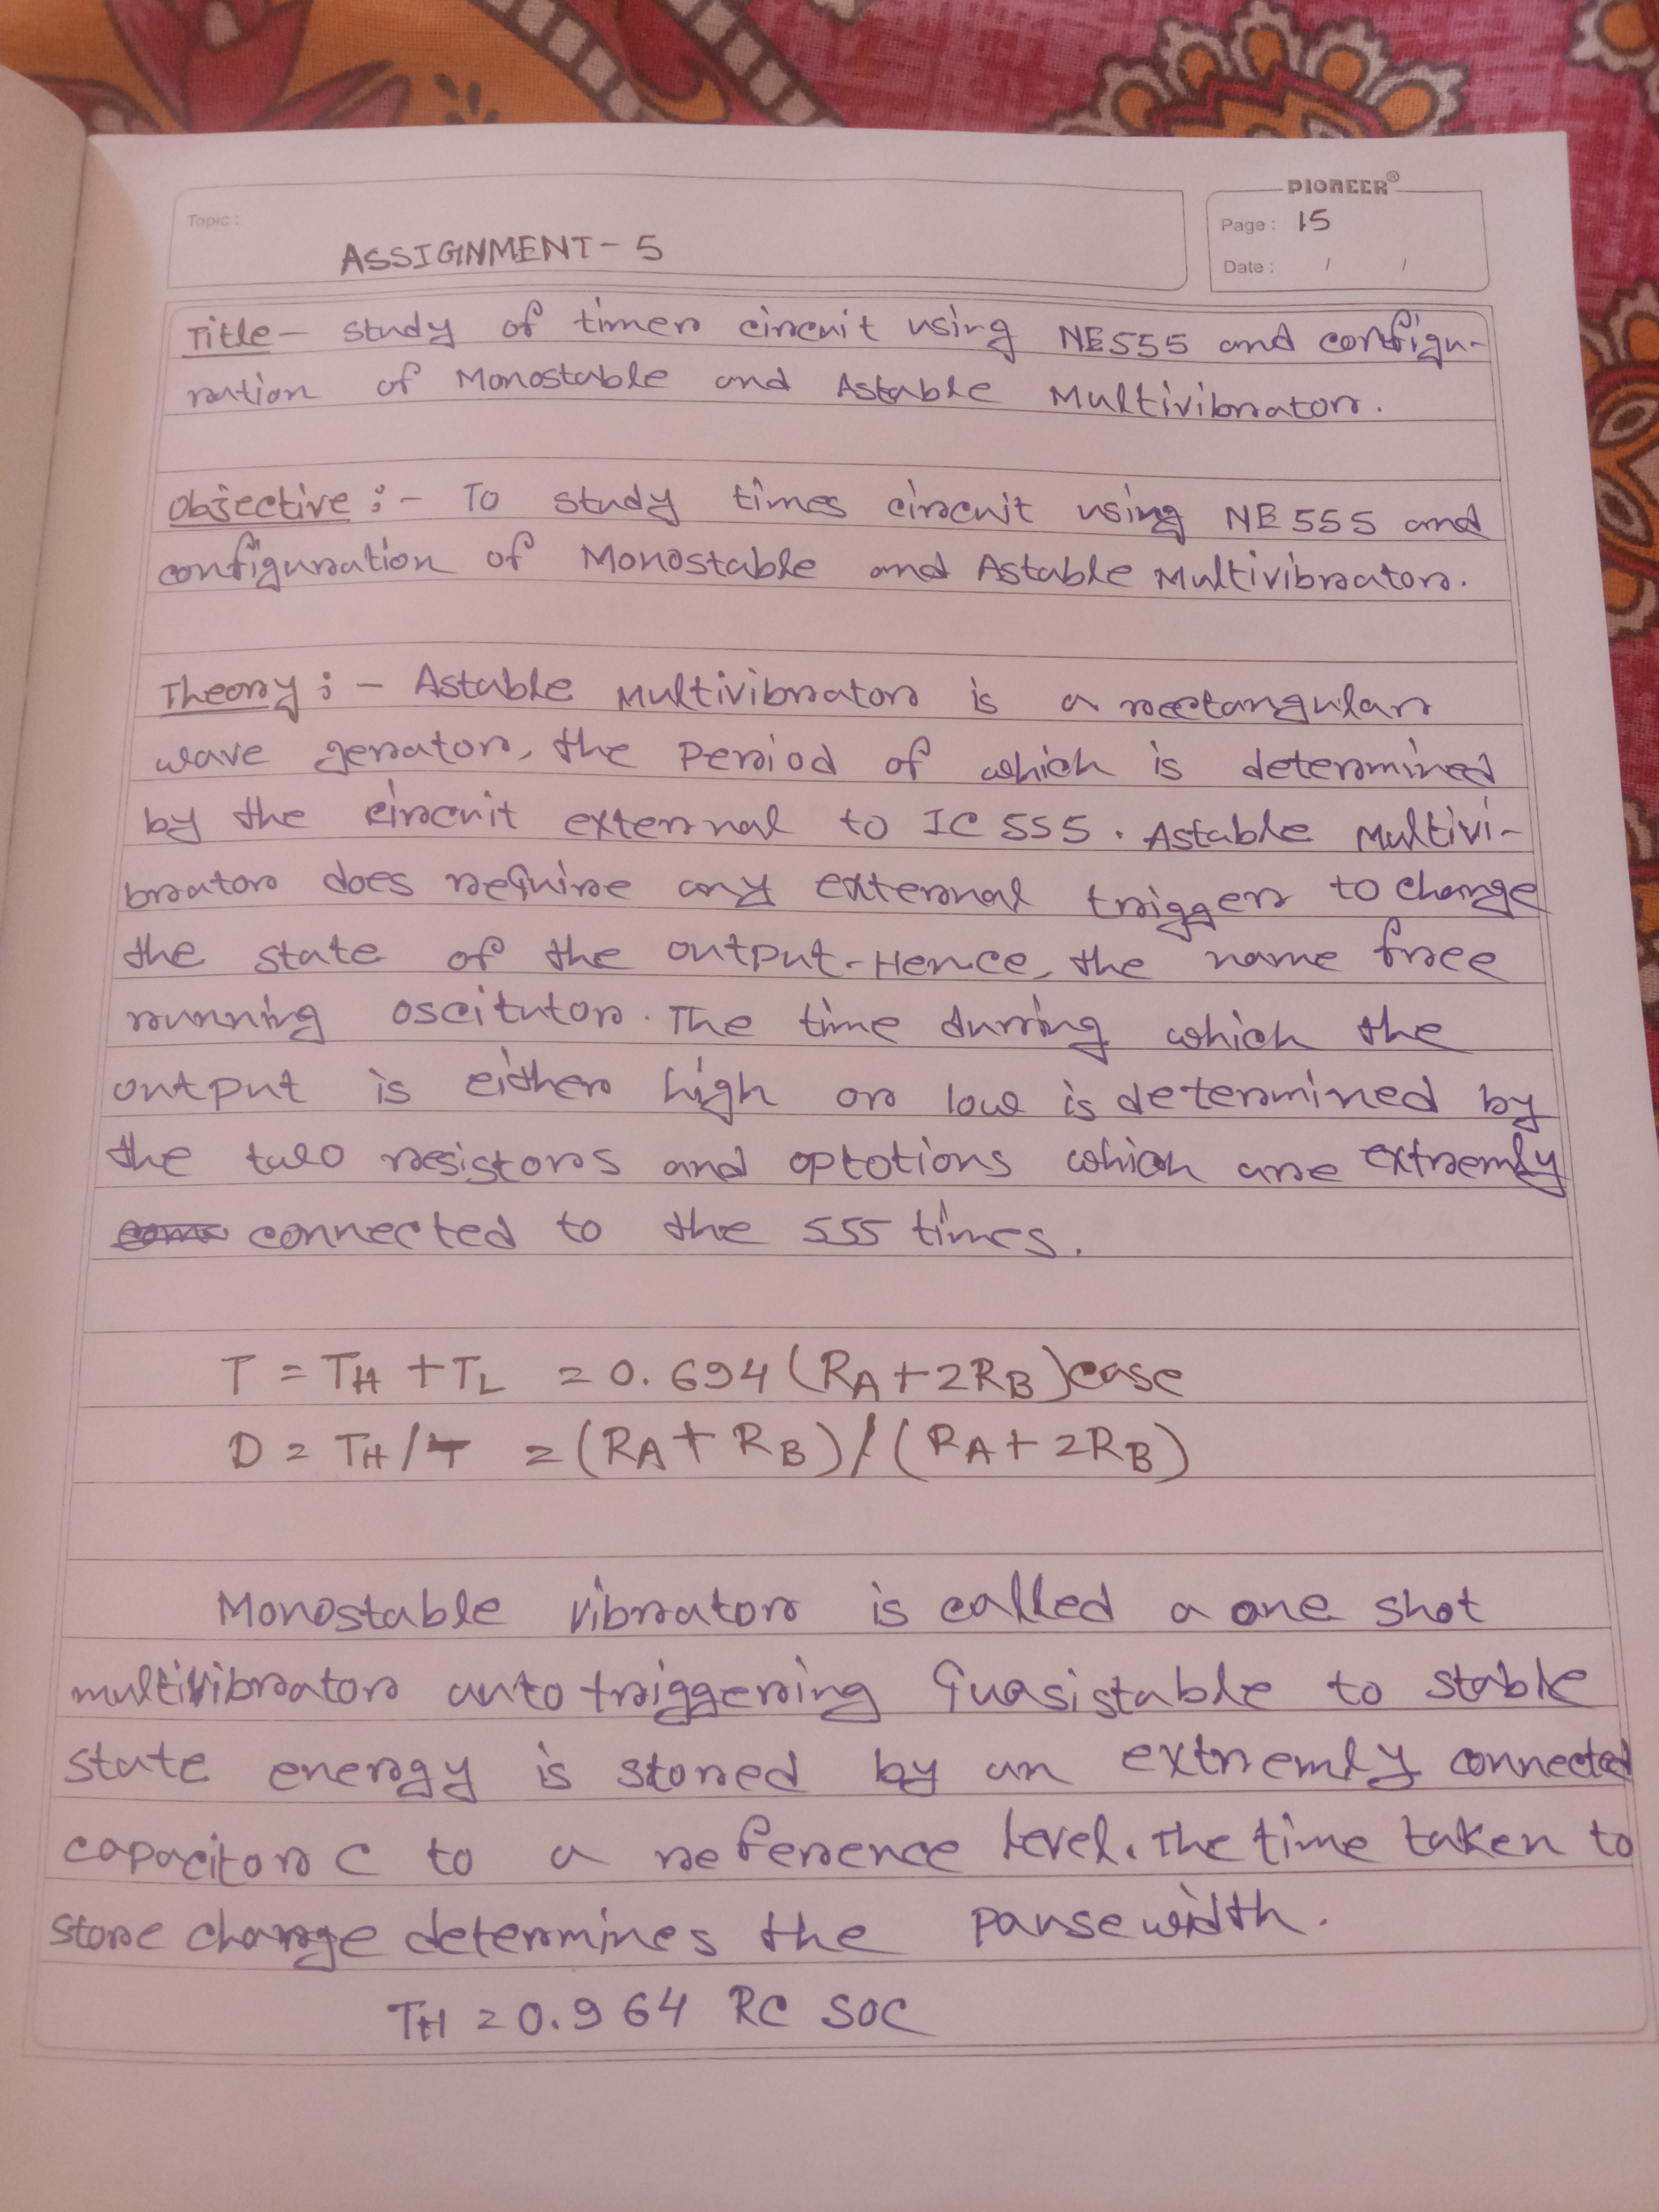 PIONEER®
Topic :
ASSIGNMENT - 5
Page : 15
Date : / /
Title - study of timer circuit using NE555 and configu-
ration of Monostable and Astable Multivibrator.
Objective : - To study times circuit using NE 555 and
configuration of Monostable and Astable Multivibrator.
Theory : - Astable Multivibrator is a rectangular
wave genrator, the Period of which is determined
by the circuit external to IC 555. Astable Multivi-
brator does require any external trigger to change
the state of the output. Hence, the name free
running oscitutor. The time durring which the
output is either high or low is determined by
the two resistors and optotions which are extremly
connected to the 555 times.
T = TH + TL = 0.694 (RA + 2RB) case
D = TH / T = (RA + RB) / (RA + 2RB)
Monostable vibrator is called a one shot
multivibrator auto triggering Quasistable to stable
state energy is stored by an extremly connected
capacitor C to a reference level. The time taken to
store change determines the pause width.
TH = 0.964 RC SOC